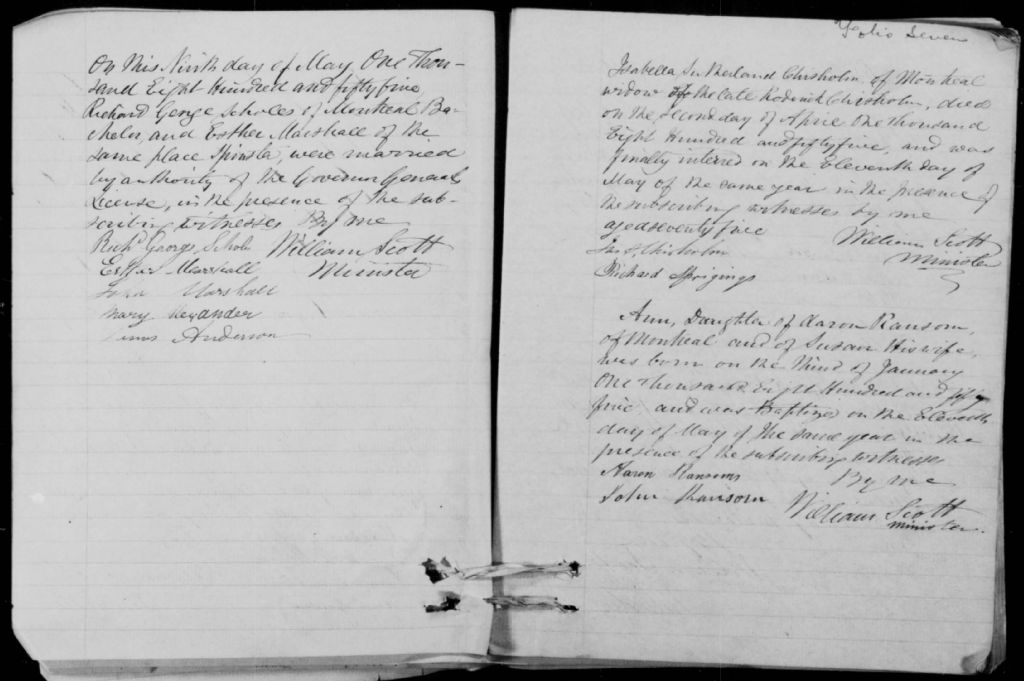 On this Ninth day of May, One Thou-
sand Eight Hundred and fifty five,
Richard George Scholes of Montreal Ba-
chelor, and Esther Marshall of the
same place Spinster, were married
by authority of the Governor Generals
License, in the presence of the sub-
scribing witnesses By me
Richd George Scholes William Scott
Esther Marshall Minister
John Marshall
Mary Alexander
James Anderson
Folio Seven
Isabella Sutherland Chisholm, of Montreal
widow of the late Roderick Chisholm, died
on the second day of April One thousand
Eight Hundred and fifty five, and was
finally interred on the Eleventh day of
May of the same year in the presence of
the subscribing witnesses by me
aged seventy five William Scott
Chisholm Minister
Richard Sprigings
Ann, Daughter of Aaron Ransom,
of Montreal and of Susan His wife,
was born on the third of January
One thousand Eight Hundred and fifty
five, and was Baptized on the Eleventh
day of May of the same year in the
presence of the subscribing witnesses
Aaron Ransom By me
John Ransom William Scott
minister.